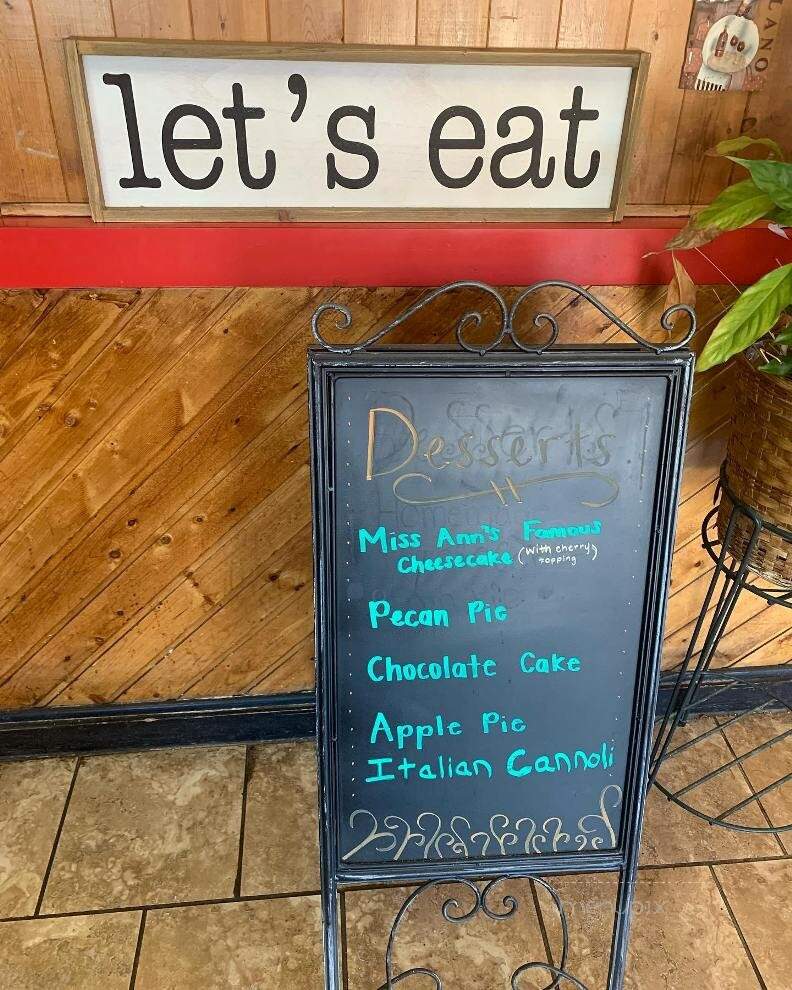 LANO
let's eat
Desserts
Miss Ann's Famous
Cheesecake (with cherry
topping)
Pecan Pie
Chocolate Cake
Apple Pie
Italian Cannoli
menupix